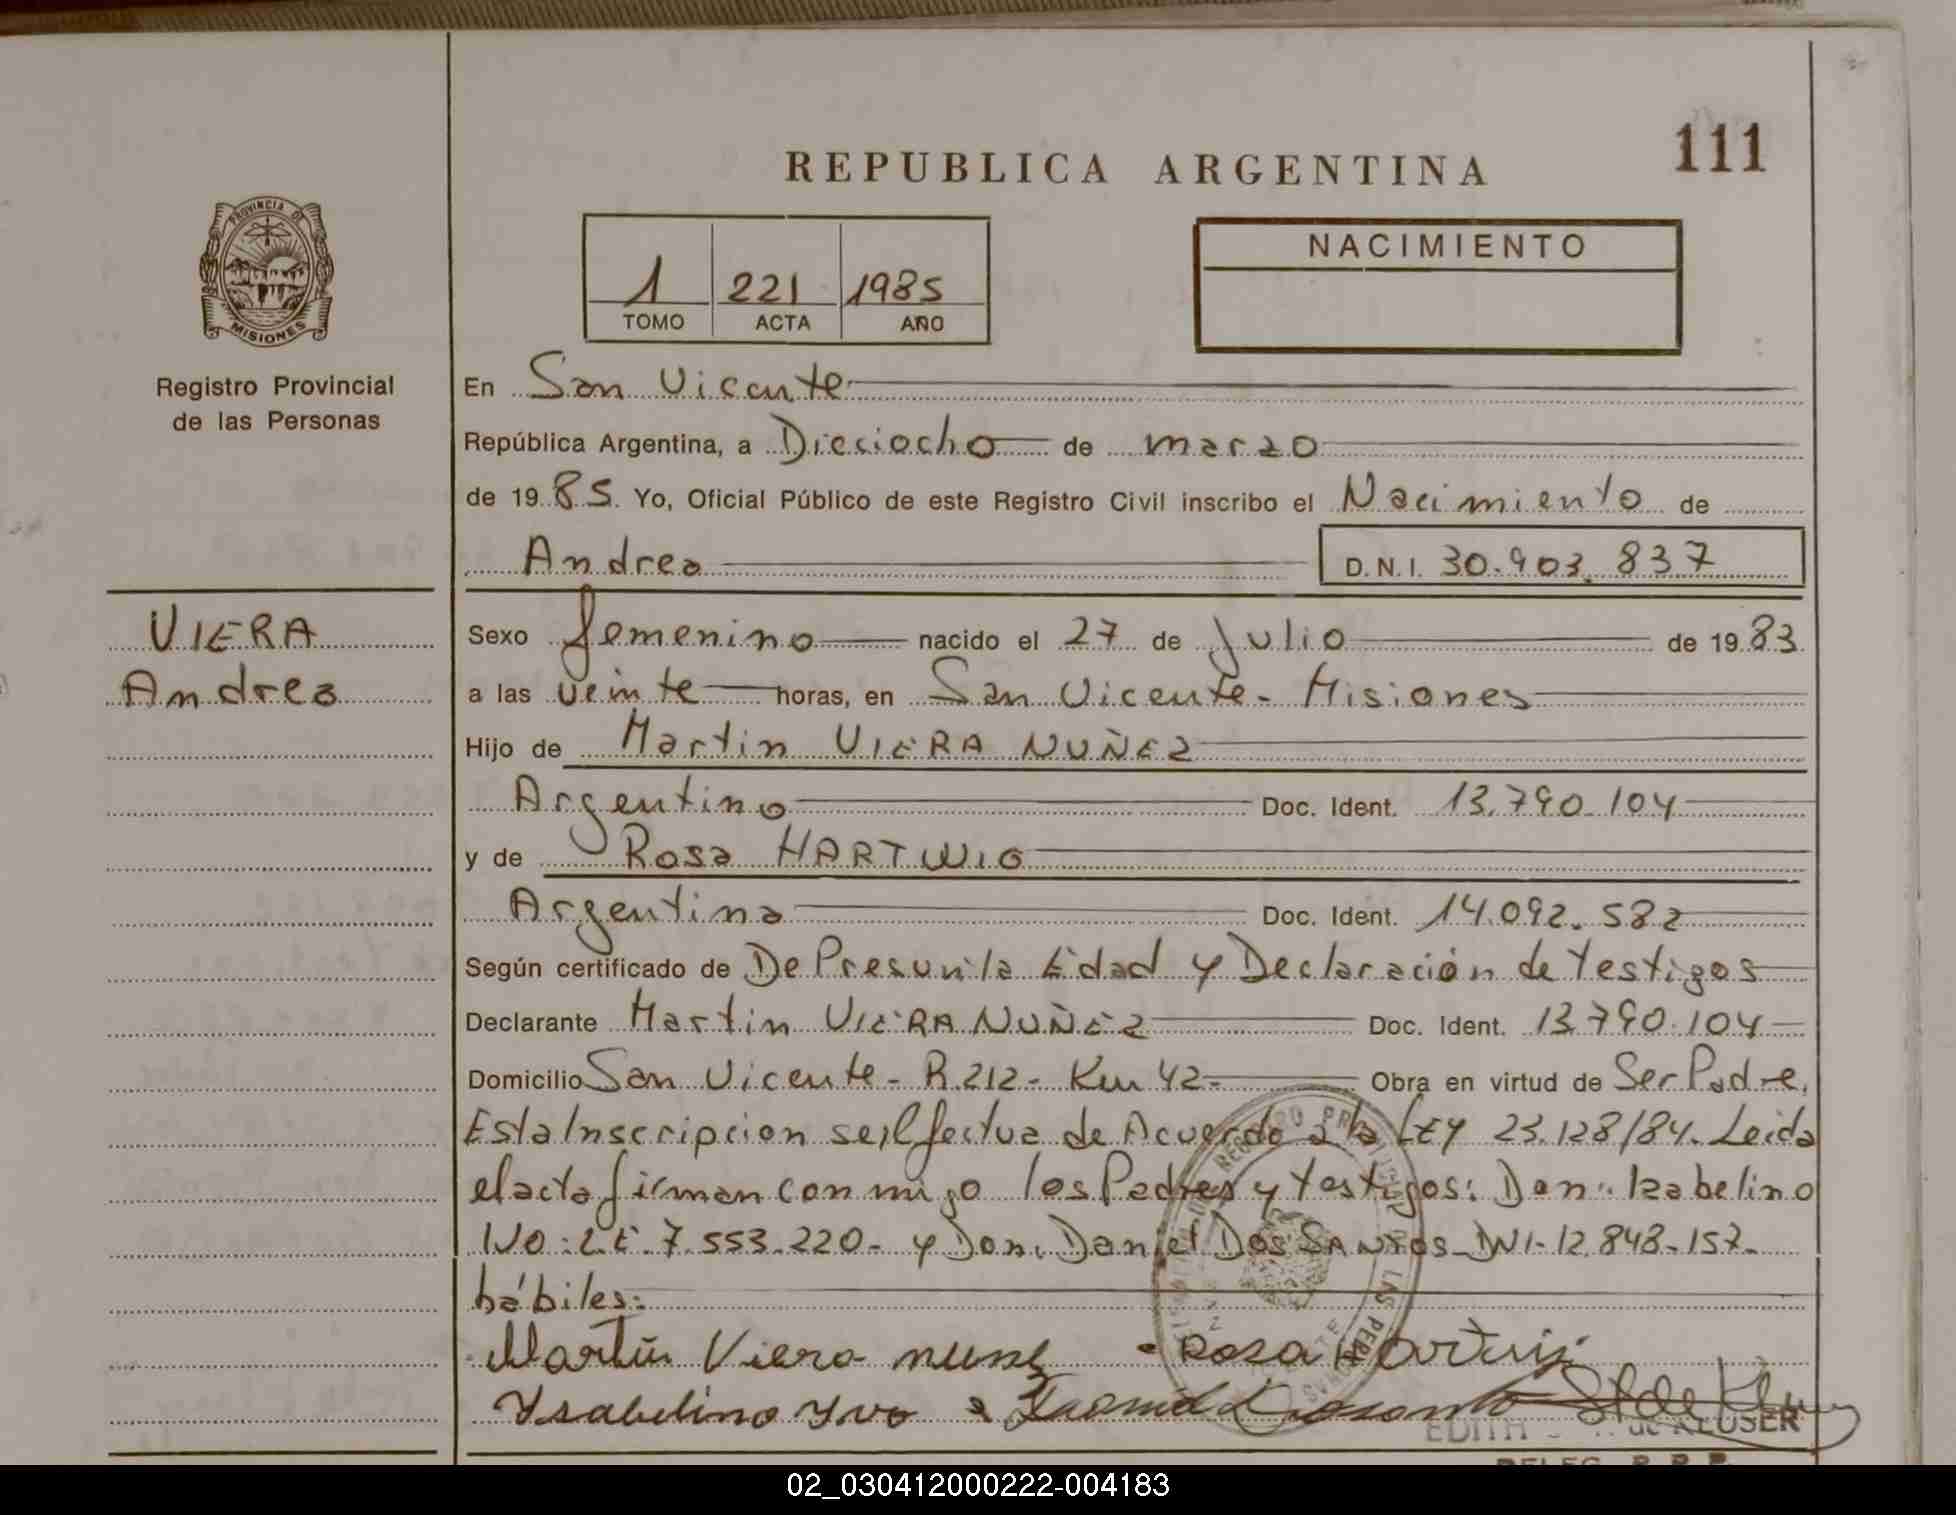 111
REPUBLICA ARGENTINA
PROVINCIA DE
MISIONES
Registro Provincial
de las Personas
1 221 1985
TOMO ACTA AÑO
NACIMIENTO
En San Vicente
República Argentina, a Dieciocho de marzo
de 19 85. Yo, Oficial Público de este Registro Civil inscribo el Nacimiento de
Andrea D.N.I. 30.903.837
VIERA
Andrea
Sexo femenino nacido el 27 de Julio de 19 83
a las veinte horas, en San Vicente - Misiones
Hijo de Martin VIERA NUÑEZ
Argentino Doc. Ident. 13.790.104
y de Rosa HARTWIG
Argentina Doc. Ident. 14.092.582
Según certificado de De Presunta Edad y Declaración de Testigos
Declarante Martin VIERA NUÑEZ Doc. Ident. 13.790.104
Domicilio San Vicente - R 212 - Km 42- Obra en virtud de Ser Padre,
Esta Inscripcion se Efectua de Acuerdo a la LEY 23.128/84. Leida
el acta firman conmigo los Padres y Testigos: Don: Izabelino
IVO: L.E. 7.553.220- y Don: Daniel Dos SANTOS-DNI-12.843-157-
hábiles:
Martin Viera nunez - Rosa Hartwig
Ysabelino Yvo
EDITH de KLUSER
DELEG. R.P.P.
02_030412000222-004183